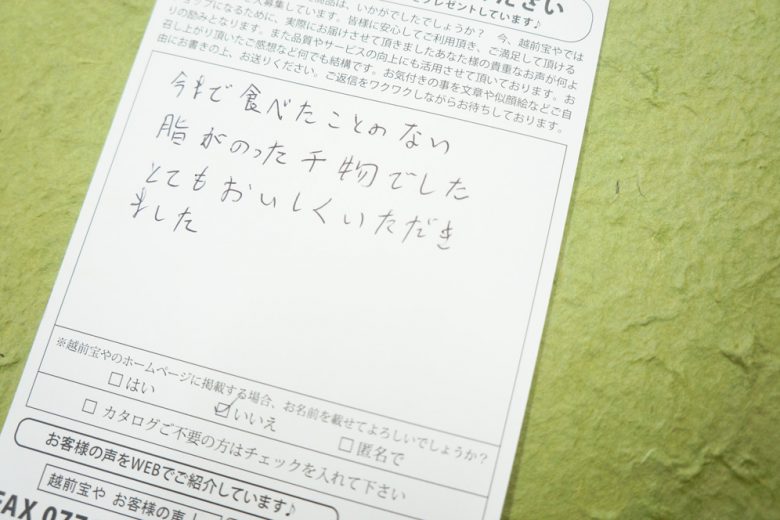 ださい
プレゼントしています♪
商品は、いかがでしたでしょうか? 今、越前宝やでは
大募集しています。皆様に安心してご利用頂き、ご満足して頂ける
ョップになるために、実際にお届けさせて頂きましたあなた様の貴重なお声が何よ
りの励みとなります。また品質やサービスの向上にも活用させて頂いております。お
召し上がり頂いたご感想など何でも結構です。お気付きの事を文章や似顔絵などご自
由にお書きの上、お送りください。ご返信をワクワクしながらお待ちしております。
今まで食べたことのない
脂がのった干物でした
とてもおいしくいただき
ました
※越前宝やのホームページに掲載する場合、お名前を載せてよろしいでしょうか?
□はい ☑いいえ □匿名で
□ カタログご不要の方はチェックを入れて下さい
お客様の声をWEBでご紹介しています♪
越前宝や お客様の声
FAX 077